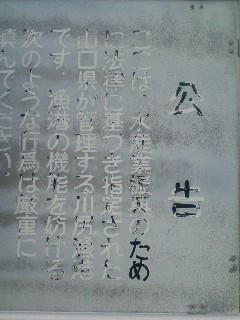 公告
ここは、水産業振興のため
に法律に基づき指定された
山口県が管理する川尻漁港
です。漁港の機能を妨げる
次のような行為は厳重に
慎んでください。